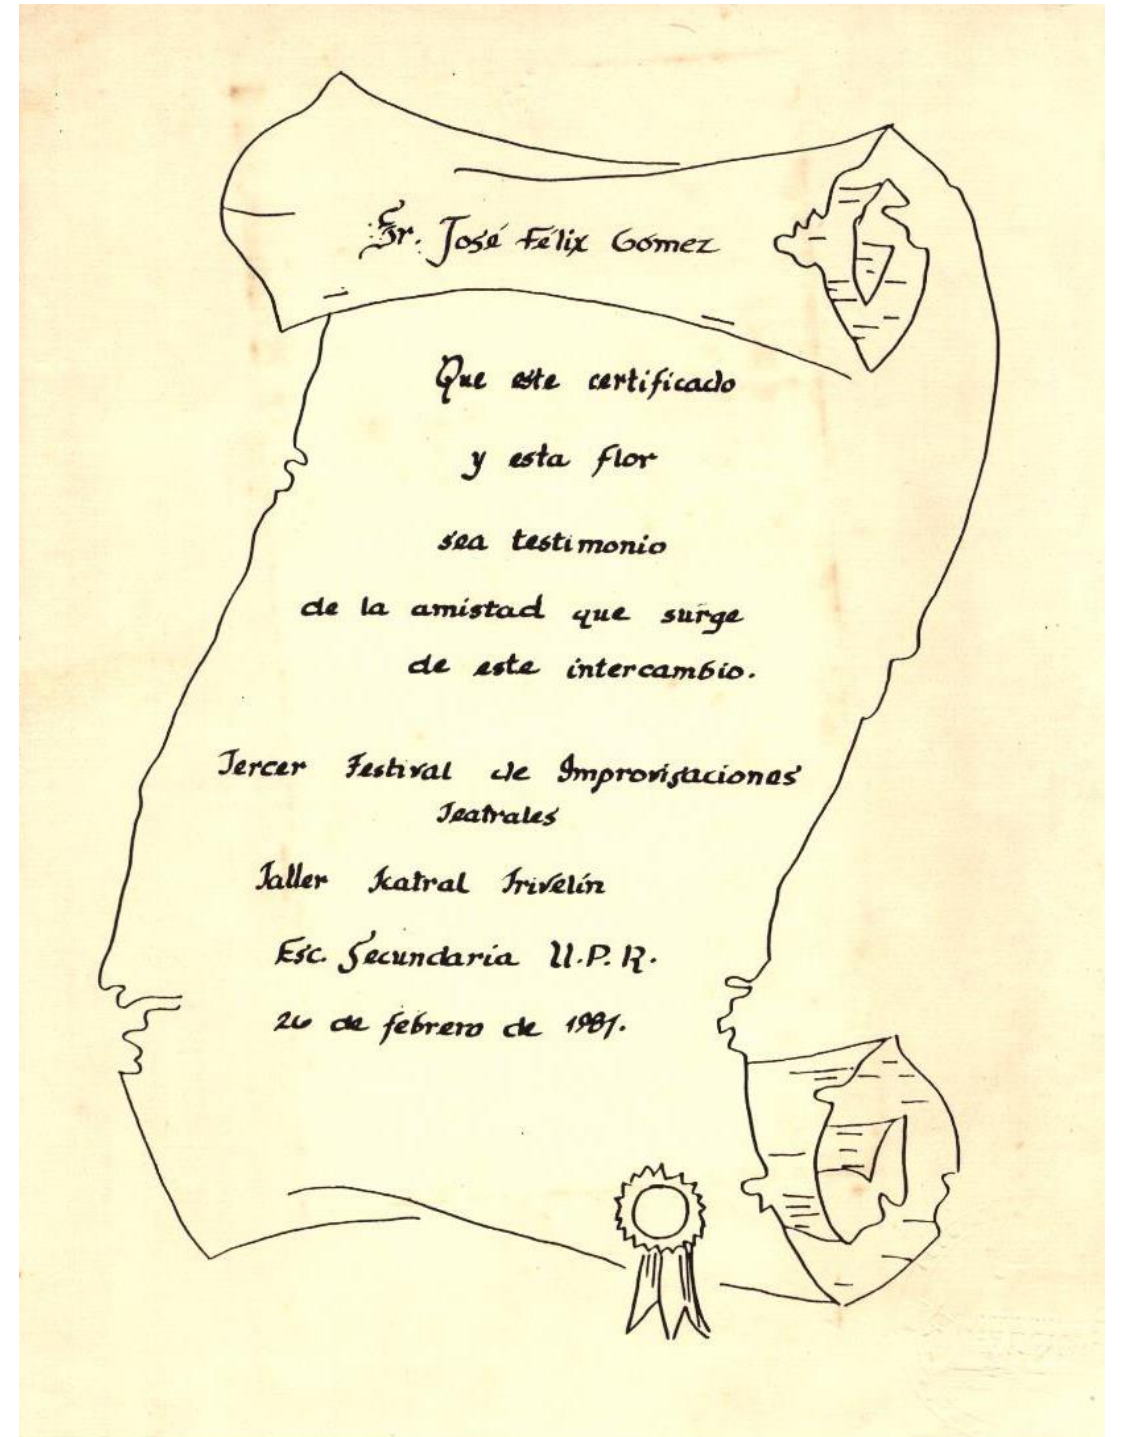 Sr. José Félix Gómez
Que este certificado
y esta flor
sea testimonio
de la amistad que surge
de este intercambio.
Tercer Festival de Improvisaciones
Teatrales
Taller Teatral Trivelín
Esc. Secundaria U.P.R.
26 de febrero de 1981.